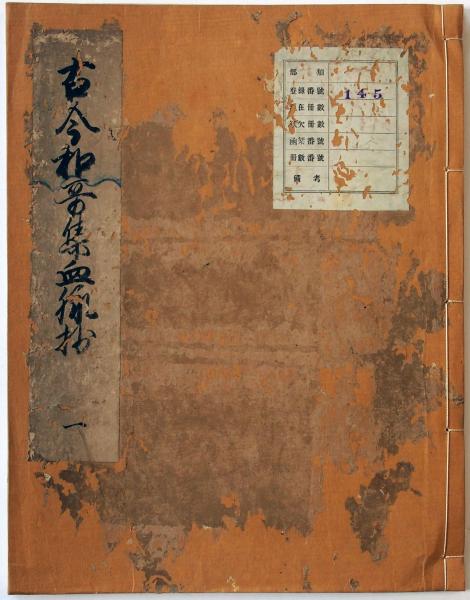 古今和哥集血脉抄
一
部類
登錄番號 145
在冊數
欠冊數
函架番號
冊數番號
備考